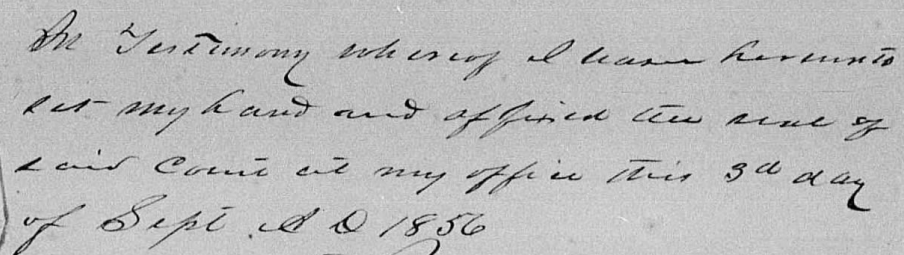 In Testimony whereof I have hereunto
set my hand and affixed the seal of
said Court at my office this 3d day
of Sept A D 1856